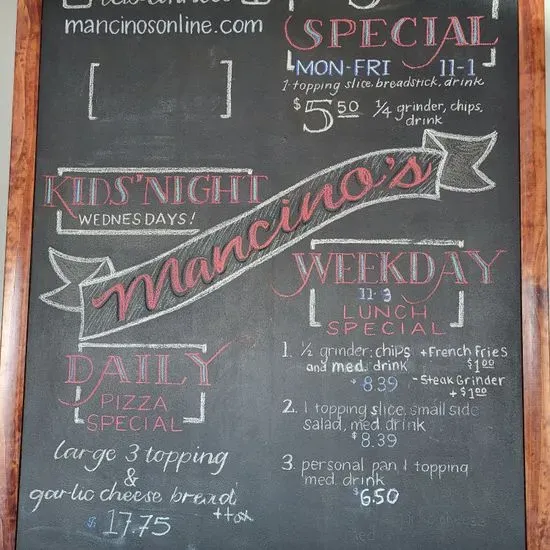 mancinosonline.com
SPECIAL
MON-FRI 11-1
1 topping slice, breadstick, drink
$5.50 1/4 grinder, chips,
drink
KIDS' NIGHT
WEDNESDAYS!
Mancino's
WEEKDAY
11-3
LUNCH
SPECIAL
1. 1/2 grinder, chips
and med. drink
8.39
+French Fries
$1.00
-Steak Grinder
+$1.00
2. 1 topping slice, small side
salad, med. drink
$8.39
3. personal pan 1 topping
med. drink
$6.50
DAILY
PIZZA
SPECIAL
large 3 topping
&
garlic cheese bread
$17.75 +tax